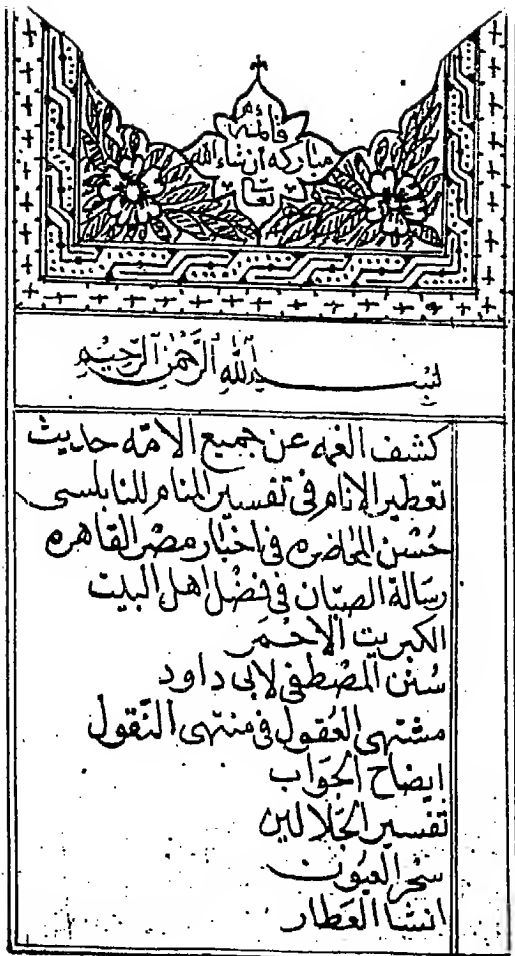 قائمة
مباركه ان شاء الله
تعا
بسم الله الرحمن الرحيم
كشف الغمه عن جميع الامه حديث
تعطير الانام فى تفسير المنام للنابلسى
حسن المحاضره فى اخبار مصر القاهره
رسالة الصبان فى فضل اهل البيت
الكبريت الاحمر
سنن المصطفى لابى داود
مشتهى العقول فى منتهى النقول
ايضاح الجواب
تفسير الجلالين
سحر العيون
انشا العطار